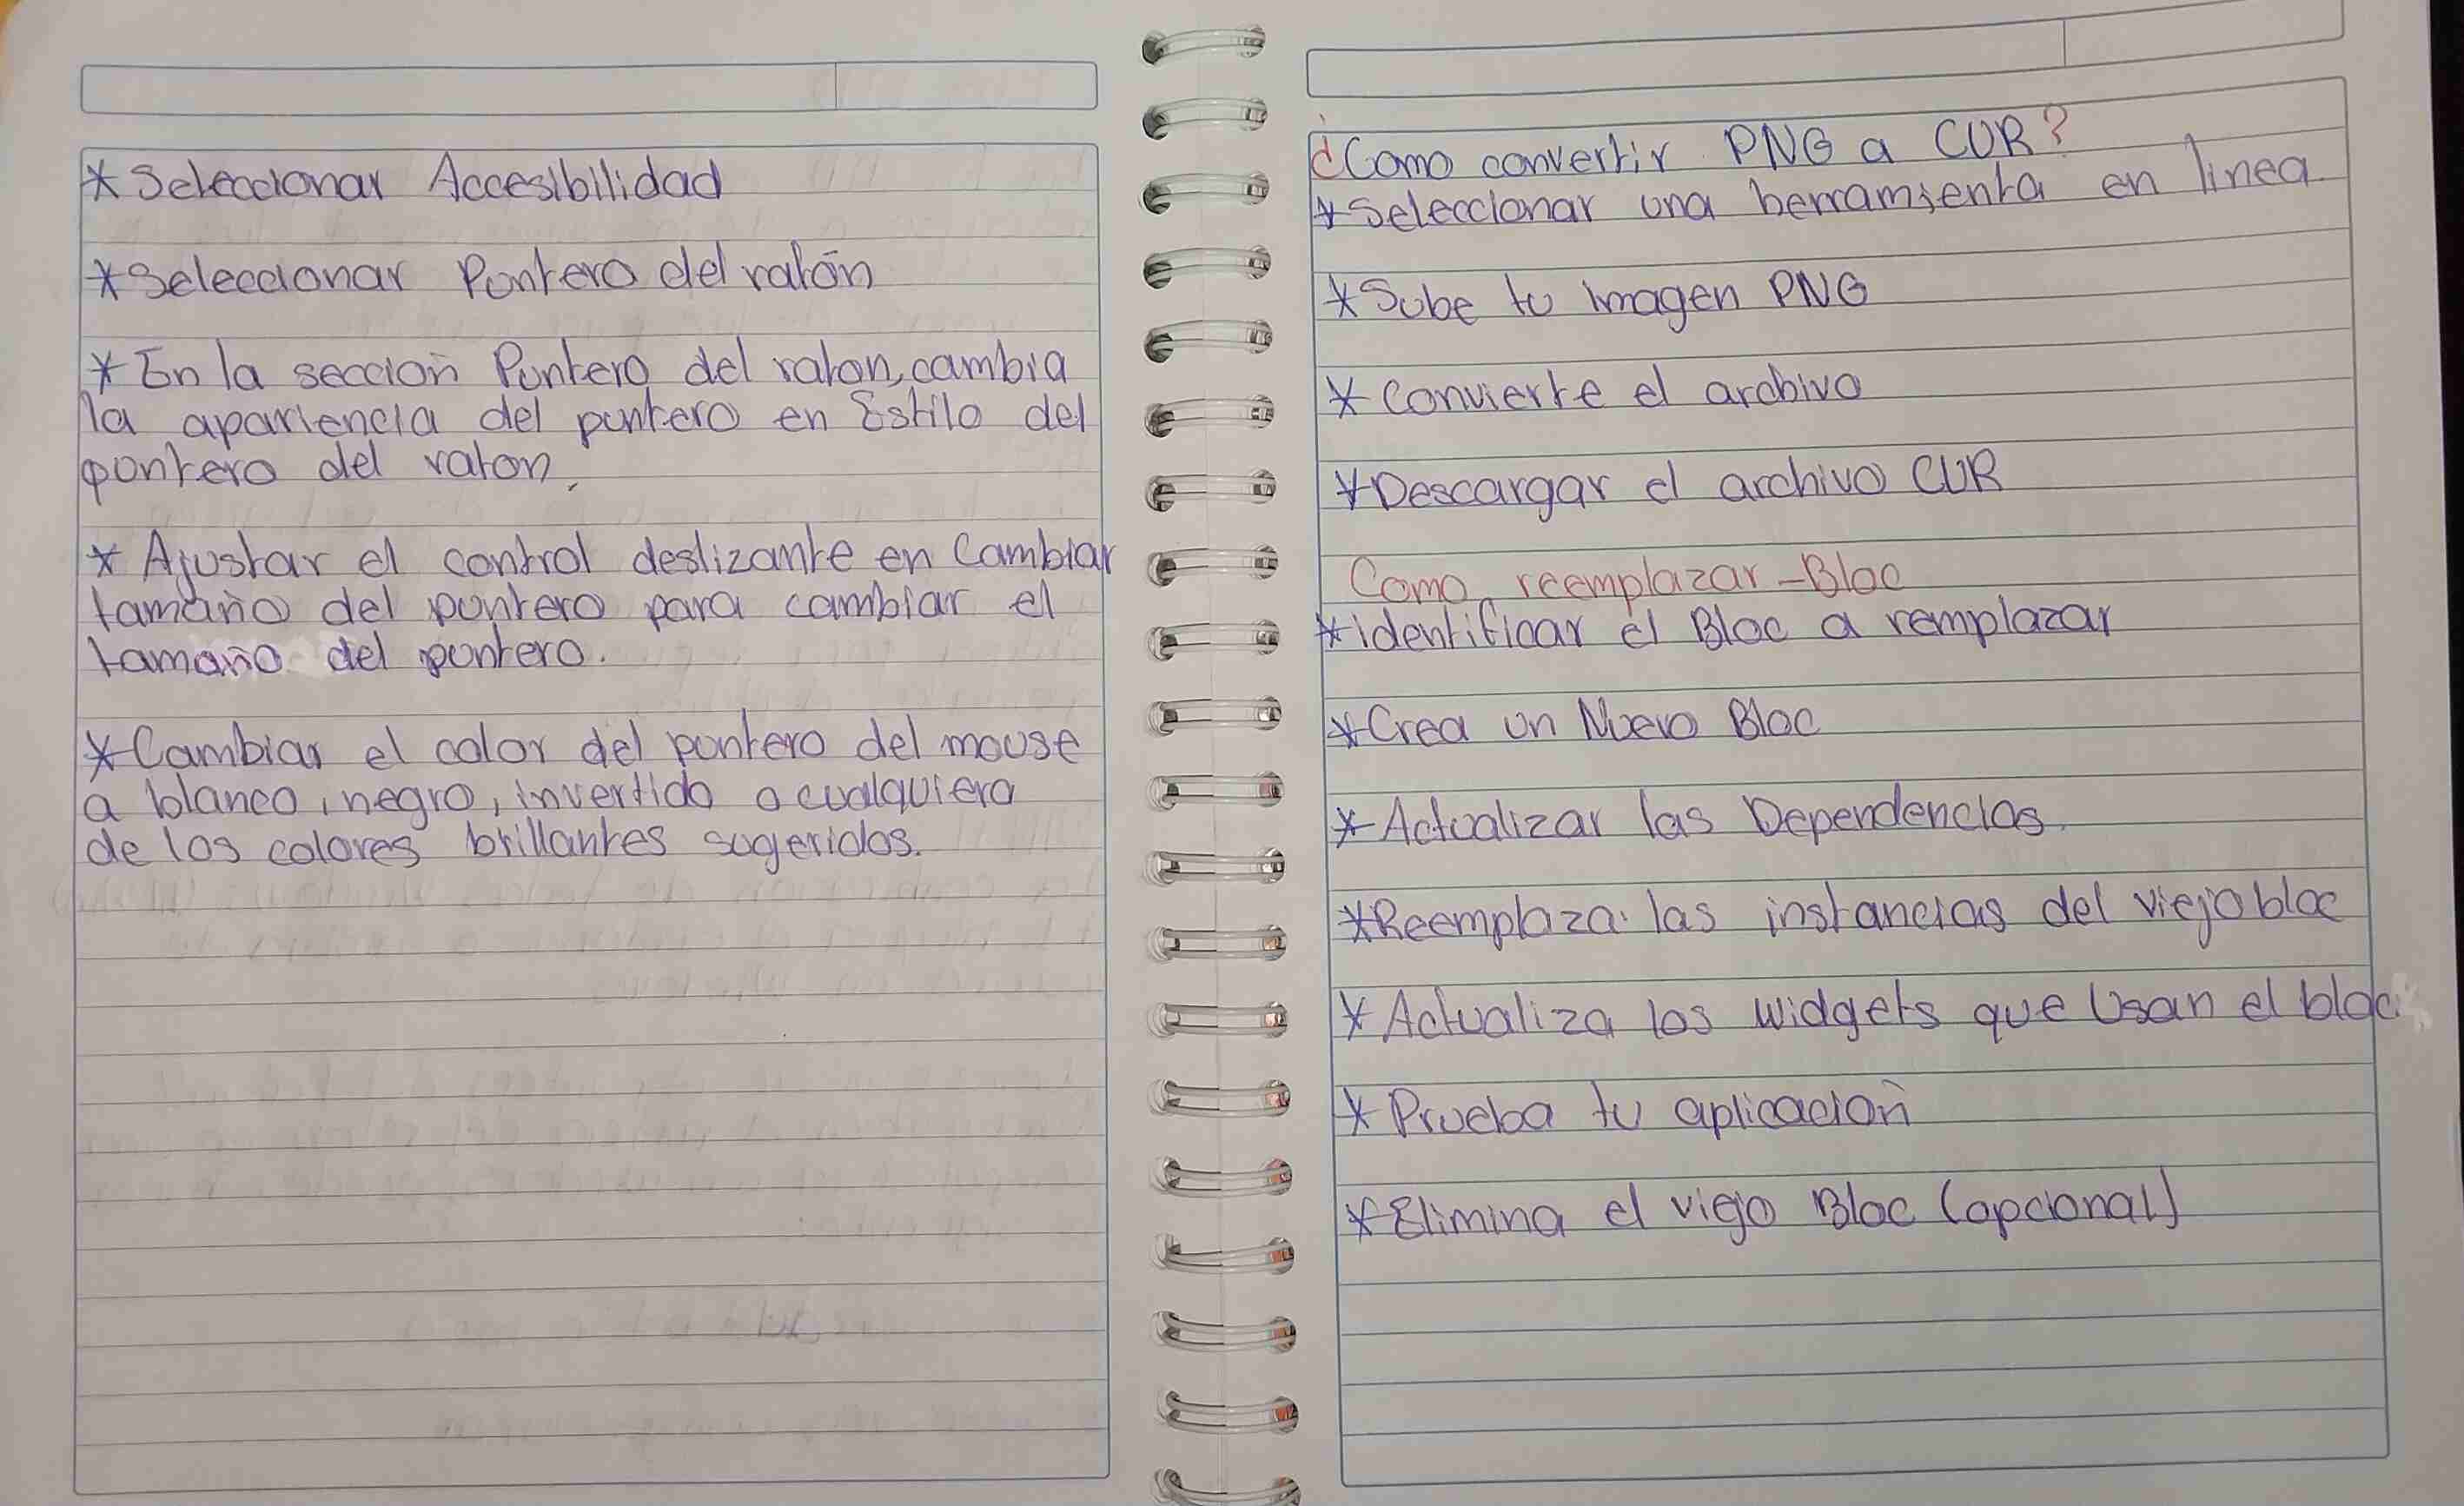 * Seleccionar Accesibilidad
* Seleccionar Puntero del ratón
* En la sección Puntero del raton, cambia
la apariencia del puntero en Estilo del
puntero del raton.
* Ajustar el control deslizante en Cambiar
tamaño del puntero para cambiar el
tamaño del puntero.
* Cambiar el color del puntero del mouse
a blanco, negro, invertido o cualquiera
de los colores brillantes sugeridos.
¿Como convertir PNG a CUR?
* Seleccionar una herramienta en linea.
* Sube tu imagen PNG
* Convierte el archivo
* Descargar el archivo CUR
Como reemplazar - Bloc
* identificar el Bloc a remplazar
* Crea un Nuevo Bloc
* Actualizar las Dependencias.
* Reemplaza las instancias del viejo bloc
* Actualiza los widgets que Usan el bloc
* Prueba tu aplicación
* Elimina el viejo Bloc (opcional)